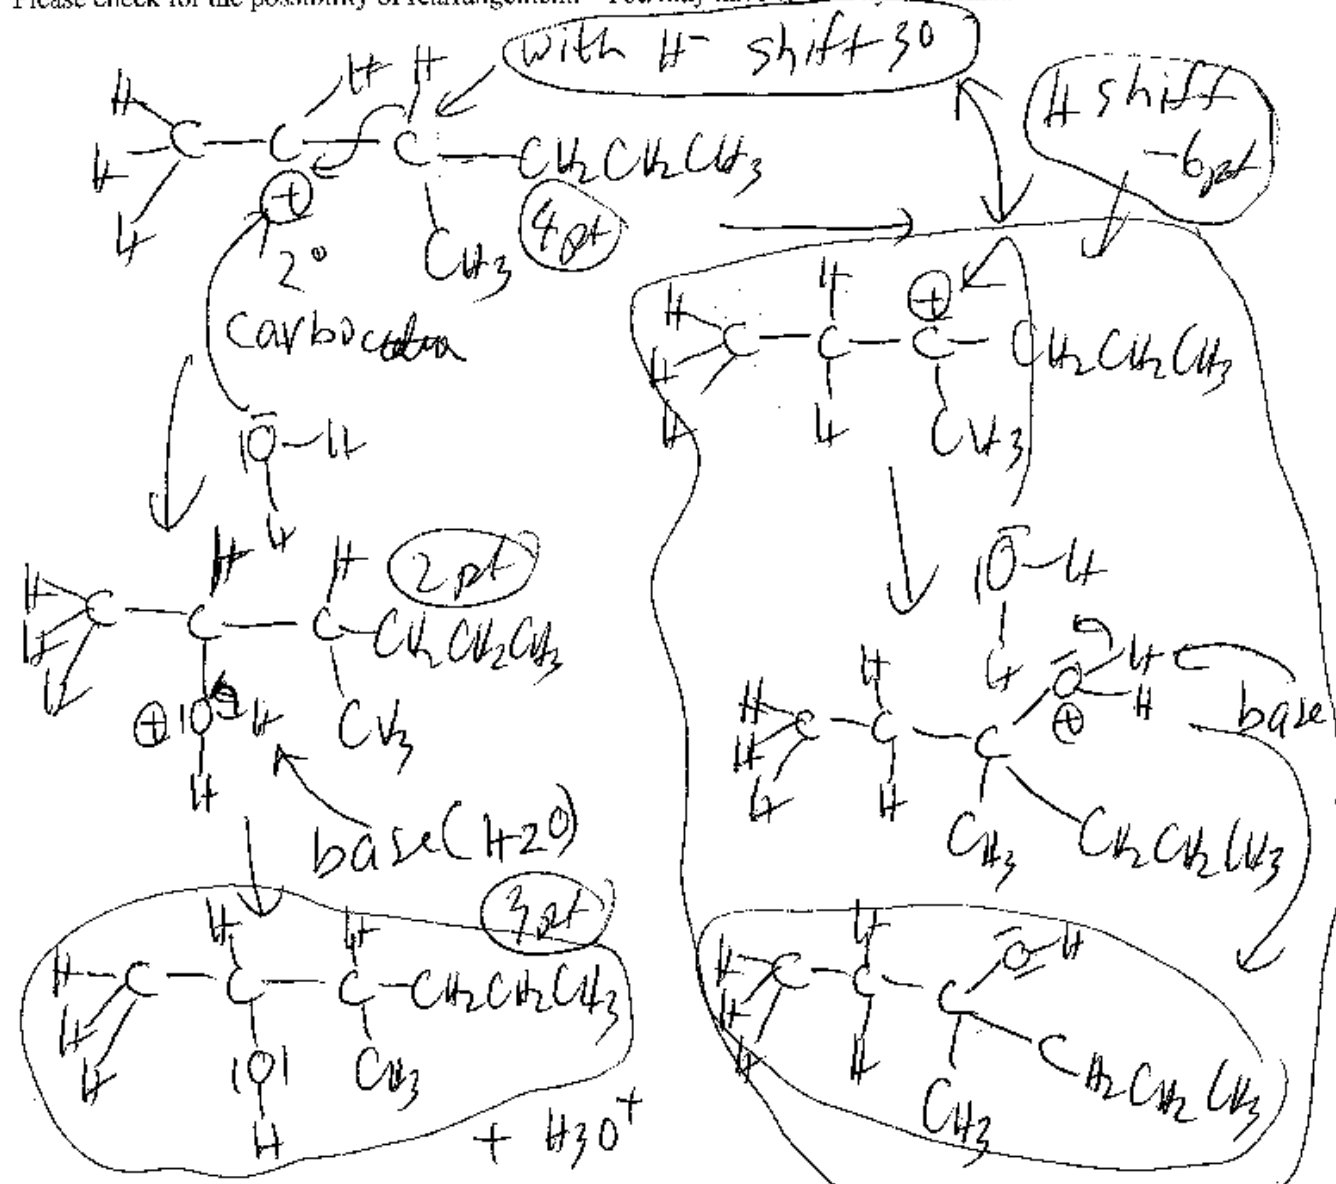 Please check for the possibility of rearrangement. You may have
with H⁻ shift 3°
H shift
-6pt
H H
H
H C C C CH2CH2CH3
H
+
2°
CH3
4pt
carbocation
H +
H C C C CH2CH2CH3
H
H H CH3
|O-H
H
|O-H
H
H H
2pt
H C C C CH2CH2CH3
H
H
+ |O H CH3
H
base (H2O)
H H O H
H C C C + H
H
H H CH3 CH2CH2CH3
base
3pt
H H
H C C C CH2CH2CH3
H
H |O| CH3
H
+ H3O+
H O-H
H C C C
H
H H CH3 CH2CH2CH3